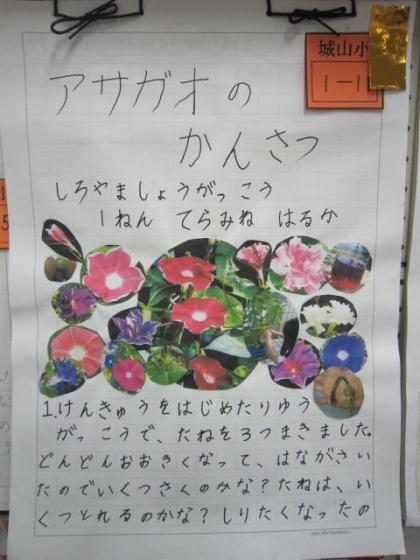 城山小
1-11
アサガオの
かんさつ
しろやましょうがっこう
1ねん てらみね はるか
1.けんきゅうをはじめたりゆう
がっこうで、たねを3つまきました。
どんどんおおきくなって、はながさい
たのでいくつさくのかな?たねは、い
くつとれるのかな?しりたくなったの